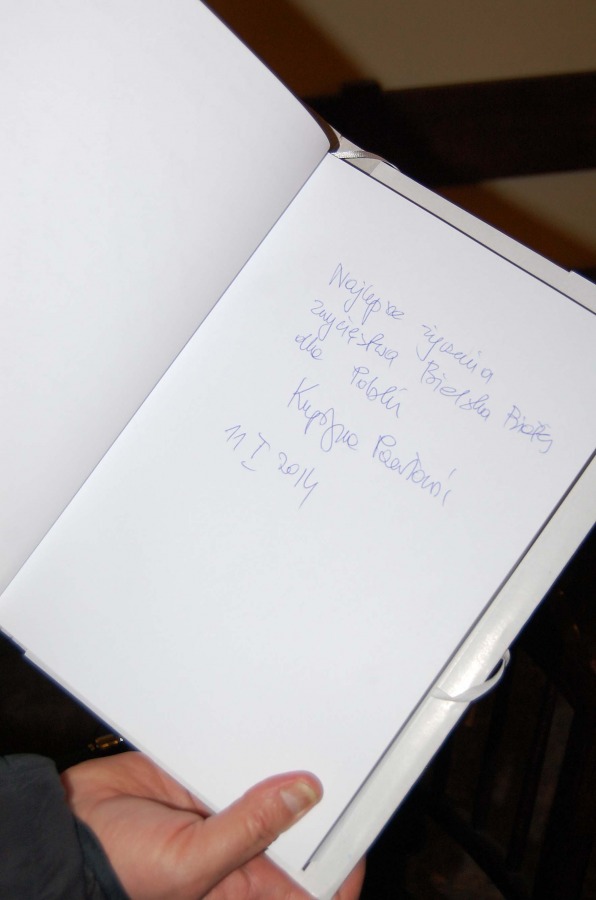 Najlepsze życzenia
zwycięstwa Bielska Białej
dla Polski
Krystyna Pawłowicz
11 I 2014